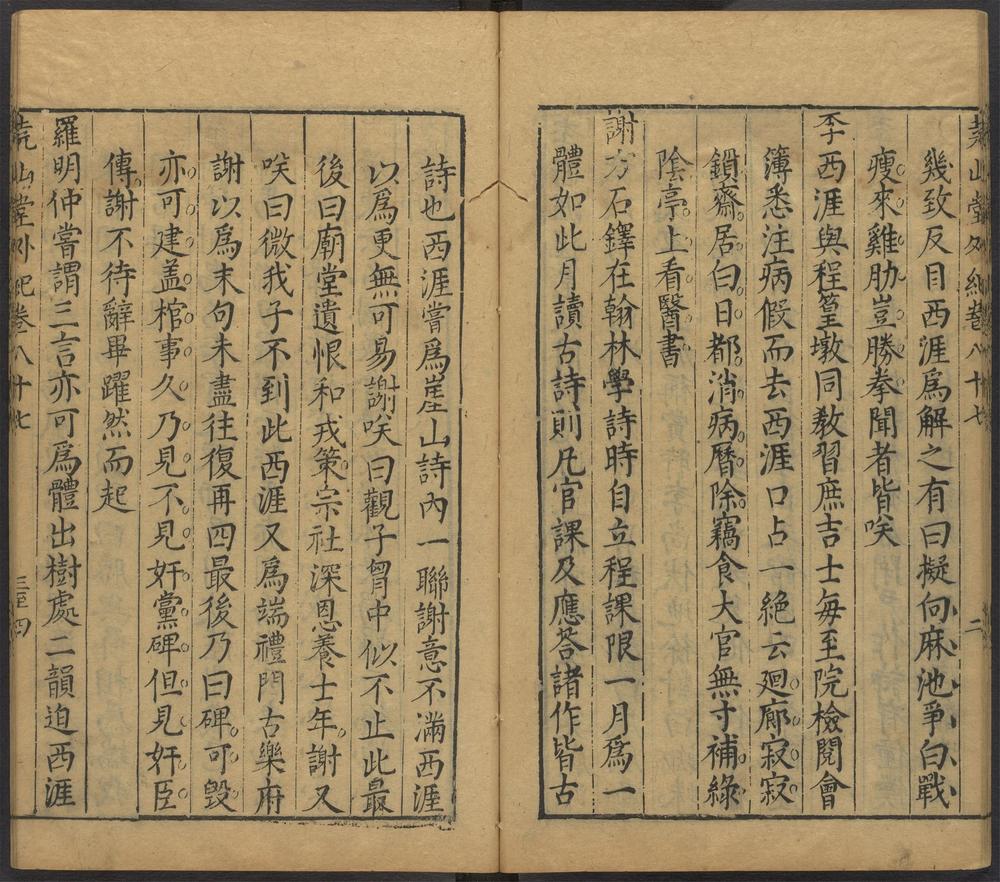 堯山堂外紀卷八十七 二
幾致反目西涯爲解之有曰擬向麻池爭白戰
瘦來雞肋豈勝拳聞者皆咲
李西涯與程篁墩同敎習庶吉士每至院檢閱會
簿悉注病假而去西涯口占一絶云廻廊寂寂
鎖齋居白日都消病曆除竊食大官無寸補綠
陰亭上看醫書
謝方石鐸在翰林學詩時自立程課限一月爲一
體如此月讀古詩則凡官課及應荅諸作皆古
詩也西涯嘗爲崖山詩內一聯謝意不滿西涯
以爲更無可易謝咲曰觀子胷中似不止此最
後曰廟堂遺恨和戎策宗社深恩養士年謝又
咲曰微我子不到此西涯又爲端禮門古樂府
謝以爲末句未盡往復再四最後乃曰碑可毀
亦可建盖棺事久乃見不見奸黨碑但見奸臣
傳謝不待辭畢躍然而起
羅明仲嘗謂三言亦可爲體出樹處二韻迫西涯
堯山堂外紀卷八十七 三至四